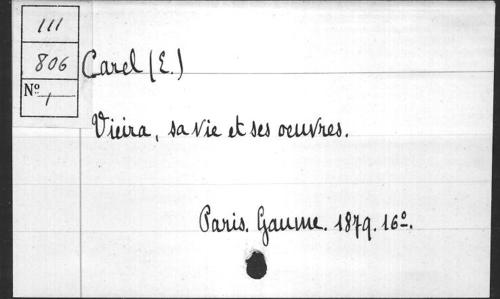 111
806
Nº 1
Carel (E.)
Vieira, sa vie et ses oeuvres.
Paris. Gaume. 1879. 16º.